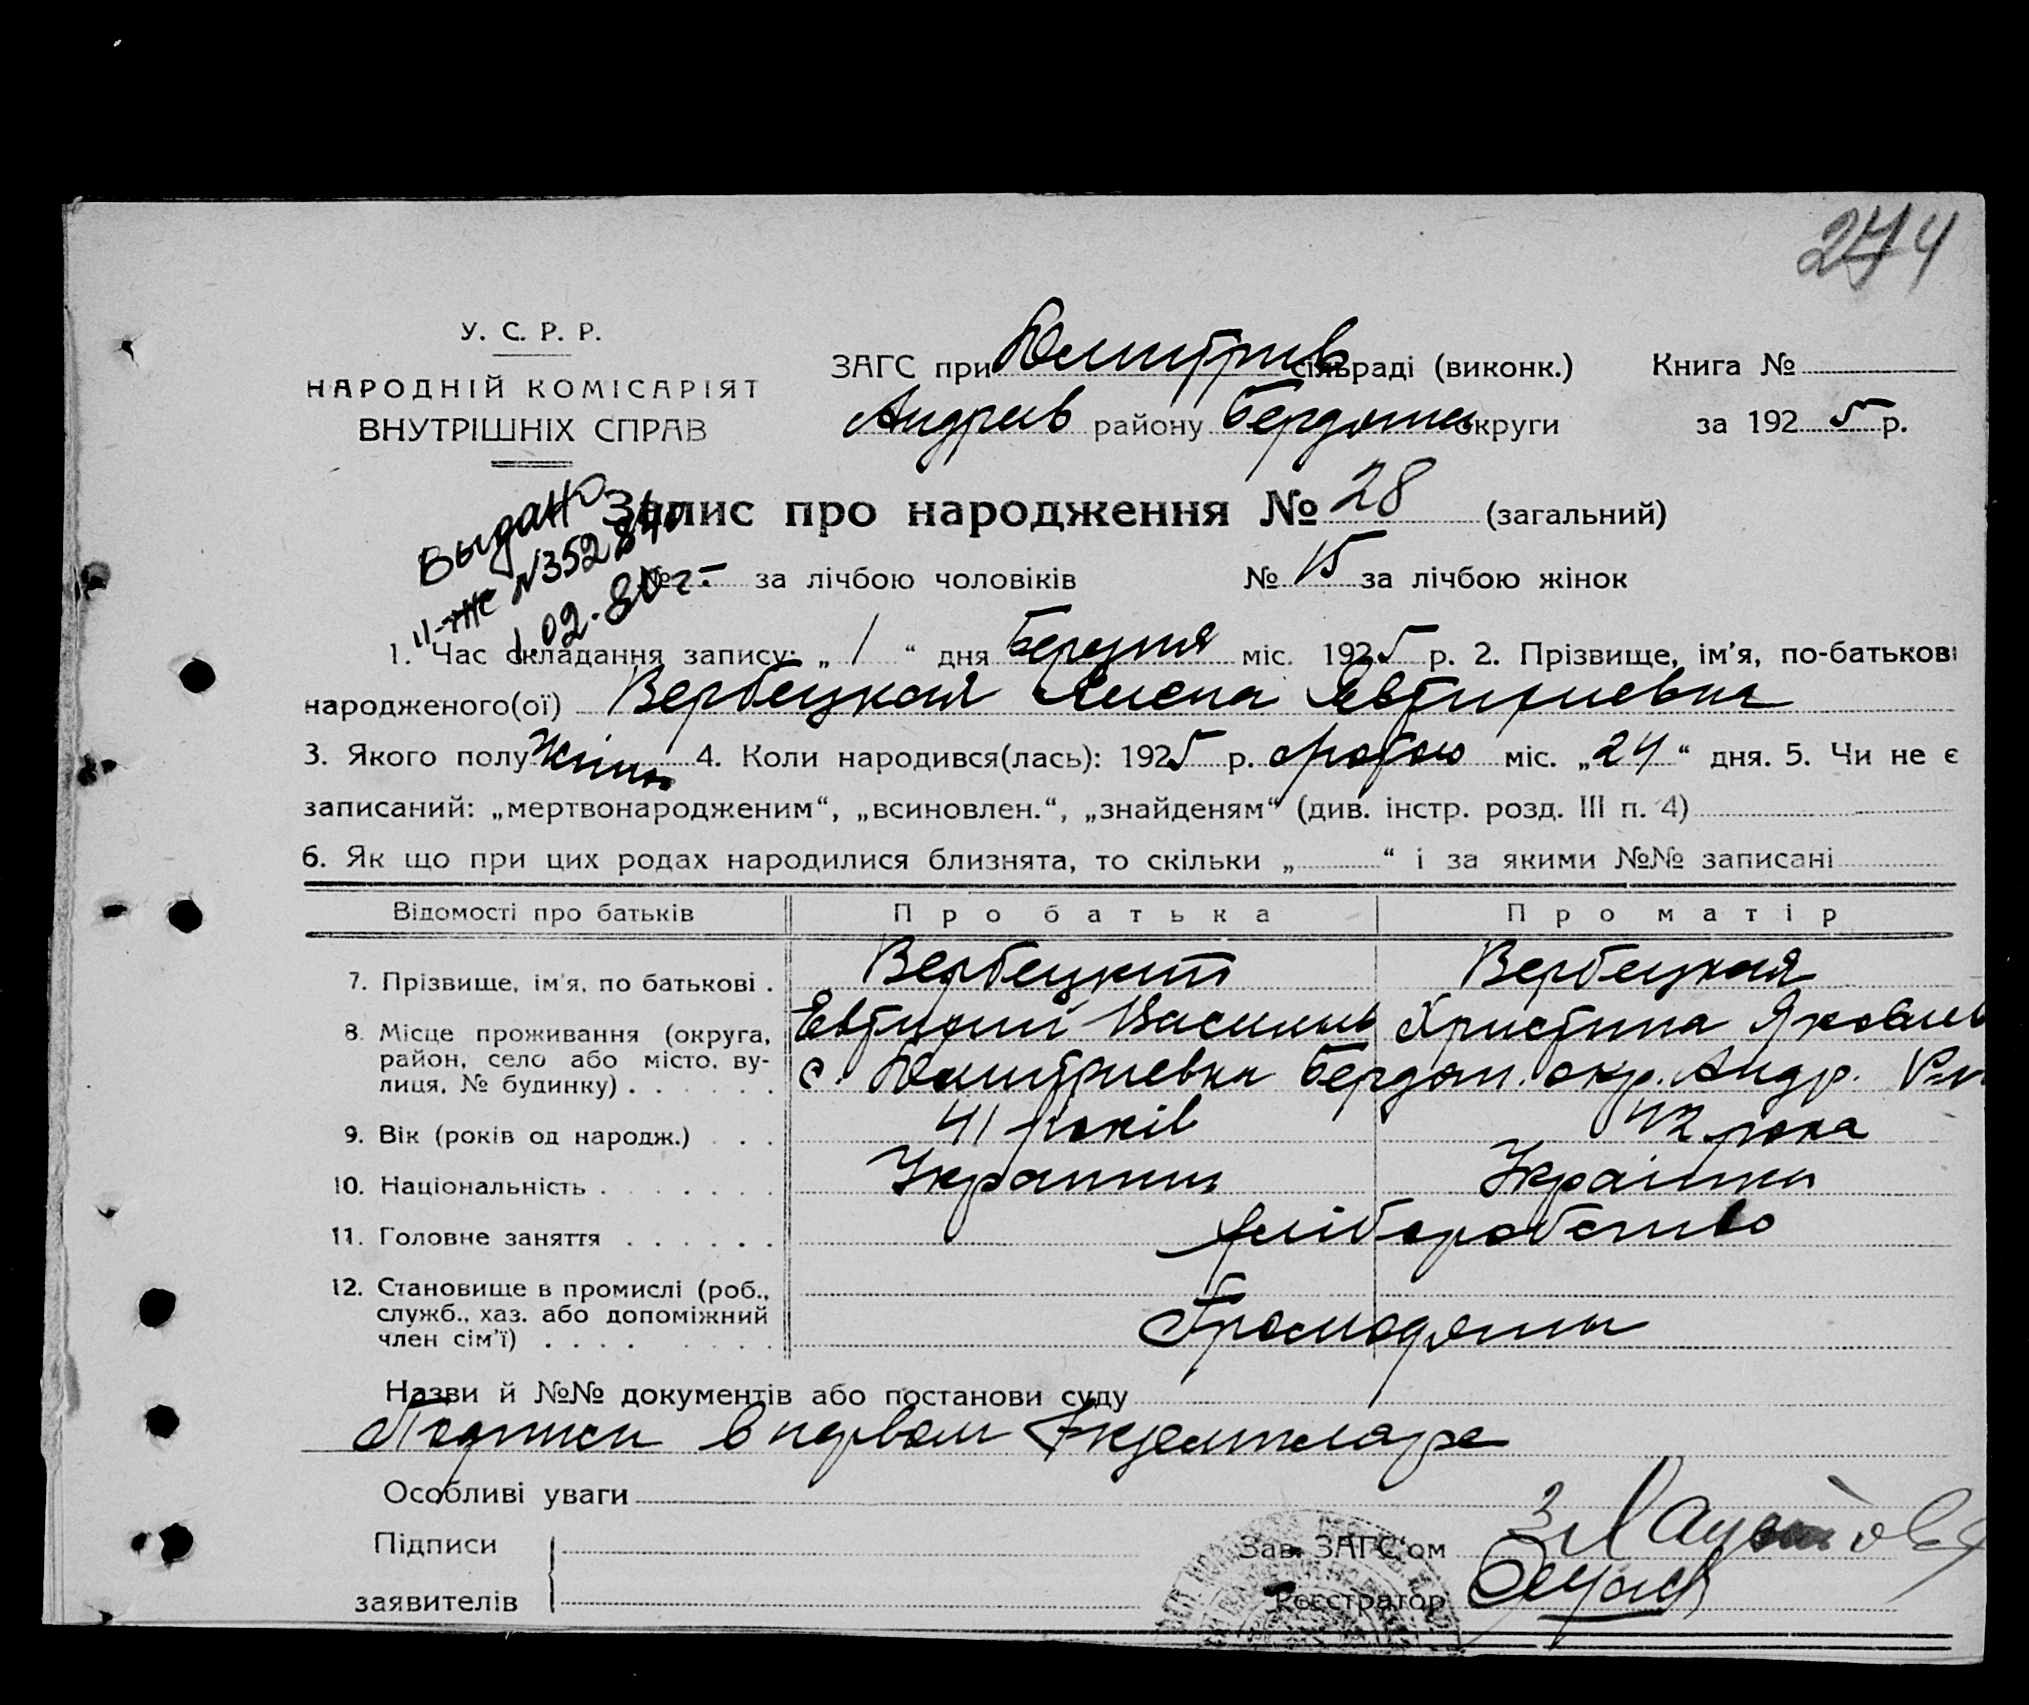 274
У. С. Р. Р.
НАРОДНІЙ КОМІСАРІЯТ
ВНУТРІШНІХ СПРАВ
ЗАГС при Дмитрів сільраді (виконк.) Книга №
Андріев району Бердянськ округи за 1925 р.
Запис про народження № 28 (загальний)
Выдано
№ за лічбою чоловіків № 15 за лічбою жінок
II-ЖС N352840
1.02.80г.
1. Час складання запису: „ 1 “ дня Березня міс. 1925 р. 2. Прізвище, ім’я, по-батькові
народженого(ої) Вербецкая Елена Евтихиевна
3. Якого полу Жіноч 4. Коли народився(лась): 1925 р. міс. „24“ дня. 5. Чи не є
записаний: „мертвонародженим“, „всиновлен.“, „знайденям“ (див. інстр. розд. III п. 4)
6. Як що при цих родах народилися близнята, то скільки „ “ і за якими №№ записані
Відомості про батьків Про батька Про матір
7. Прізвище, ім’я, по батькові . Вербецкий Вербецкая
Евтихий Василив Христина Яковлев
8. Місце проживання (округа, район, село або місто, ву-
лиця, № будинку) . . . . . с. Дмитриевка Бердян. окр. Андр. Р-н
9. Вік (років од народж.) . . . 41 років 42 рока
10. Національність . . . . . . . Українец Українка
11. Головне заняття . . . . . . хліборобство
12. Становище в промислі (роб.,
служб., хаз. або допоміжний
член сім’ї) . . . . . . . . Громадяны
Назви й №№ документів або постанови суду
Подписи в первом Экземпляре
Особливі уваги
Підписи Зав. ЗАГС’ом
заявителів Реєстратор